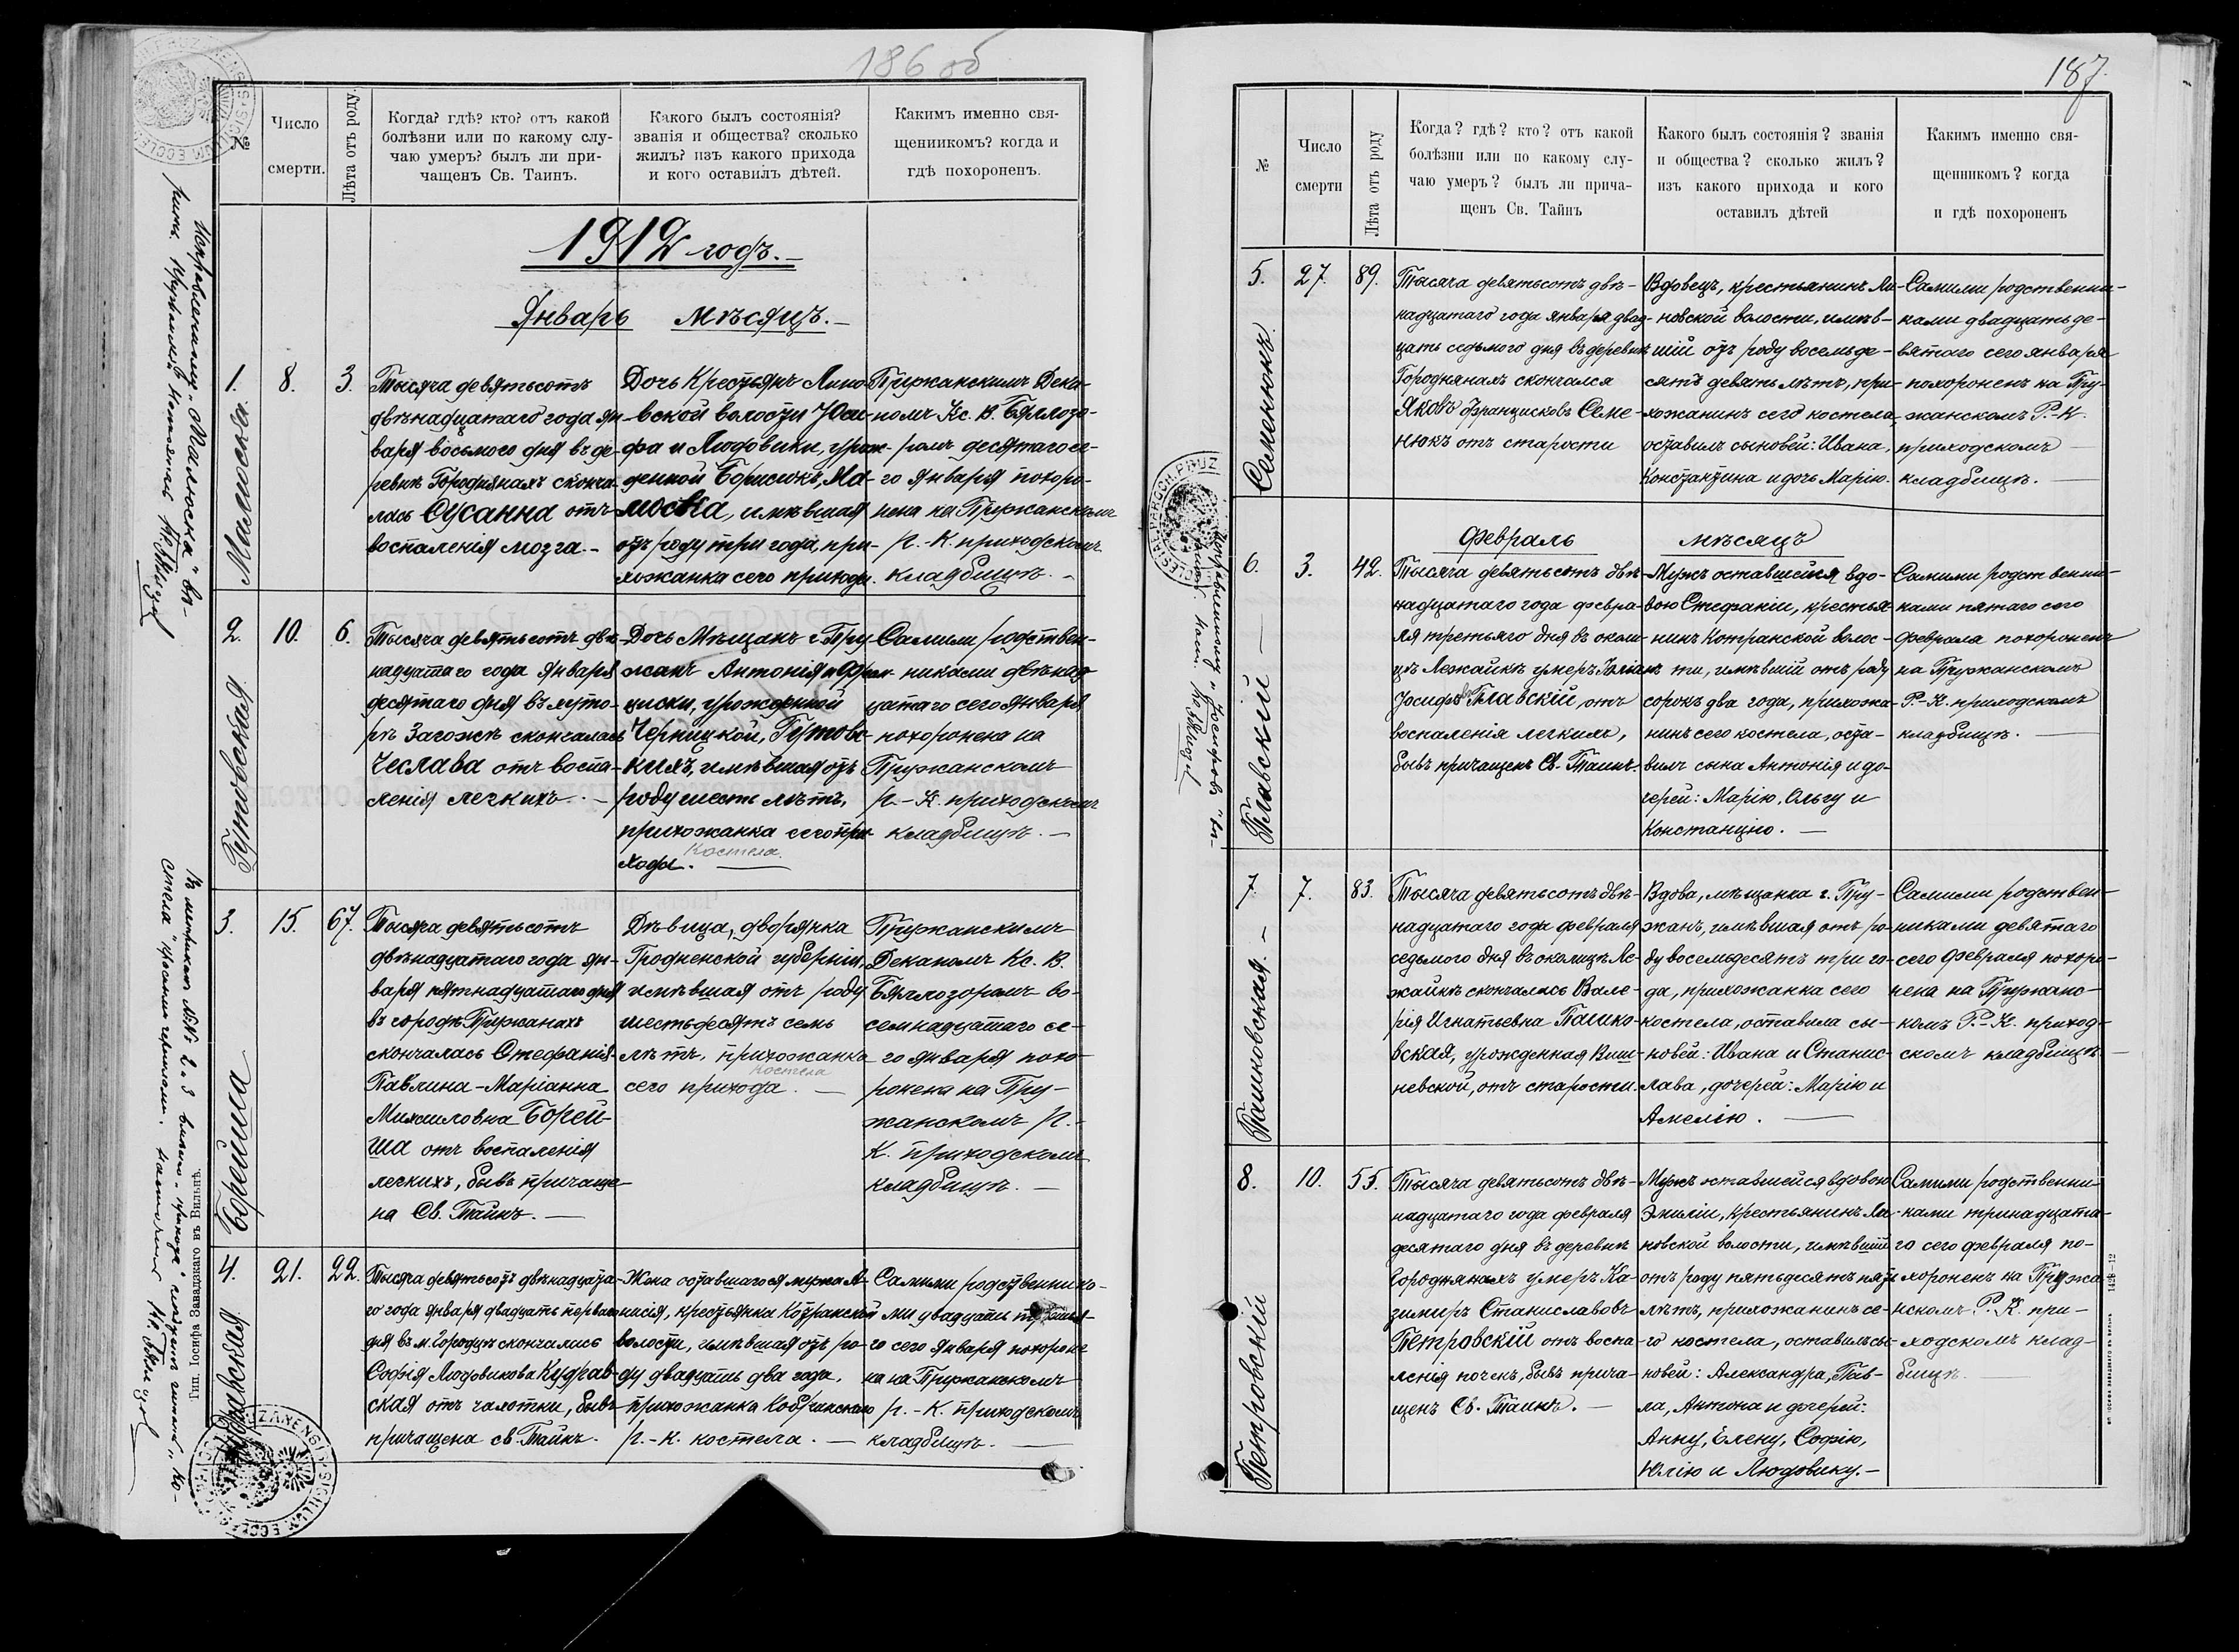 186 об
№
Число
смерти.
Лѣта отъ роду.
Когда? гдѣ? кто? отъ какой
болѣзни или по какому слу-
чаю умеръ? былъ ли при-
чащенъ Св. Таинъ.
Какого былъ состоянія?
званія и общества? сколько
жилъ? изъ какого прихода
и кого оставилъ дѣтей.
Какимъ именно свя-
щенникомъ? когда и
гдѣ похороненъ.
1912 годъ.-
Январь мѣсяцъ.-
1.
8.
3.
Малюска
Тысяча девятьсотъ
двѣнадцатаго года ян-
варя восьмого дня въ де-
ревнѣ Городнянахъ сконча-
лась Сусанна отъ
воспаленія мозга.-
Дочь Крестьянъ Лино-
вской волости Юси-
фа и Людовики, урож-
денной Борисюкъ, Ма-
люска, имѣвшая
отъ роду три года, при-
хожанка сего прихода.
Пружанскимъ Дека-
номъ Кс. В. Бялло зо-
ромъ десятаго се-
го января похоро-
нена на Пружанскомъ
Р.-К. приходскомъ
кладбищѣ.-
2.
10.
6.
Гутовская
Тысяча девятьсотъ двѣ-
надцатаго года января
десятаго дня въ хуто-
рѣ Загожѣ скончалась
Чеслава отъ воспа-
ленія легкихъ.-
Дочь Мѣщанъ г. Пру-
жанъ Антонія и Фран-
циски, урожденной
Черницкой, Гутовс-
кихъ, имѣвшая отъ
роду шесть лѣтъ,
прихожанка сего при-
Костела.
хода.
Самими родствен-
никами двѣнад-
цатаго сего января
похоронена на
Пружанскомъ
Р.-К. приходскомъ
кладбищѣ.-
3.
15.
67.
Борейша
Тысяча девятьсотъ
двѣнадцатаго года ян-
варя пятнадцатаго дня
въ городѣ Пружанахъ
скончалась Стефанія-
Павлина-Маріанна
Михайловна Борей-
ша отъ воспаленія
легкихъ, бывъ причаще-
на Св. Таинъ.-
Дѣвица, дворянка
Гродненской губерніи,
имѣвшая отъ роду
шестьдесятъ семь
лѣтъ, прихожанка
Костела
сего прихода.-
Пружанскимъ
Деканомъ Кс. В.
Бяллозоромъ во-
семнадцатаго се-
го января похо-
ронена на Пру-
жанскомъ Р.-
К. приходскомъ
кладбищѣ.-
4.
21.
22.
Тысяча девятьсотъ двѣнадцата-
го года января двадцать перваго
дня въ м. Городцѣ скончалась
Софія Людовикова Кудрав-
ская отъ чахотки, бывъ
причащена св. Таинъ.
Жена оставшагося мужа А-
нисія, крестьянка Котранской
волости, имѣвшая отъ ро-
ду двадцать два года,
прихожанка Кобринскаго
Р.-К. костела.-
Самими родственника-
ми двадцать третья-
го сего января похороне-
на на Пружанскомъ
Р.-К. приходскомъ
кладбищѣ.
Тип. Іосифа Завадзкаго въ Вильнѣ.
187.
№
Число
смерти
Лѣта отъ роду
Когда? гдѣ? кто? отъ какой
болѣзни или по какому слу-
чаю умеръ? былъ ли прича-
щенъ Св. Тайнъ
Какого былъ состоянія? званія
и общества? сколько жилъ?
изъ какого прихода и кого
оставилъ дѣтей
Какимъ именно свя-
щенникомъ? когда
и гдѣ похороненъ
5.
27.
89.
Семенюкъ
Тысяча девятьсотъ двѣ-
надцатаго года января двад-
цать седьмого дня въ деревнѣ
Городнянахъ скончался
Яковъ Францисковъ Семе-
нюкъ отъ старости
Вдовецъ, крестьянинъ Ли-
новской волости, имѣв-
шій отъ роду восемьде-
сятъ девять лѣтъ, при-
хожанинъ сего костела,
оставилъ сыновей: Ивана,
Константина и дочь Марію.
Самими родственни-
ками двадцать де-
вятаго сего января
похороненъ на Пру-
жанскомъ Р.-К.
приходскомъ
кладбищѣ.
Февраль мѣсяцъ
6.
3.
42.
Плавскій
Тысяча девятьсотъ двѣ-
надцатаго года февра-
ля третьяго дня въ околи-
цѣ Лежайкѣ умеръ Юліанъ
Іосифовъ Плавскій, отъ
воспаленія легкихъ,
бывъ причащенъ Св. Таинъ.
Мужъ оставшейся вдо-
вою Стефаніи, крестья-
нинъ Котранской волос-
ти, имѣвшій отъ роду
сорокъ два года, прихожа-
нинъ сего костела, оста-
вилъ сына Антонія и до-
черей: Марію, Ольгу и
Констанцію.-
Самими родственни-
ками пятаго сего
февраля похороненъ
на Пружанскомъ
Р.-К. приходскомъ
кладбищѣ.
7.
7.
83.
Пашковская.-
Тысяча девятьсотъ двѣ-
надцатаго года февраля
седьмого дня въ околицѣ Ле-
жайкѣ скончалась Вале-
рія Игнатьевна Пашко-
вская, урожденная Виш-
невской, отъ старости.
Вдова, мѣщанка г. Пру-
жанъ, имѣвшая отъ ро-
ду восемьдесятъ три го-
да, прихожанка сего
костела, оставила сы-
новей: Ивана и Станис-
лава, дочерей: Марію и
Амелію.
Самими родствен-
никами девятаго
сего февраля похоро-
нена на Пружанс-
комъ Р.-К. приход-
скомъ кладбищѣ.
8.
10.
55.
Петровскій
Тысяча девятьсотъ двѣ-
надцатаго года февраля
десятаго дня въ деревнѣ
Городнянахъ умеръ Ка-
зимиръ Станиславовъ
Петровскій отъ воспа-
ленія почекъ, бывъ прича-
щенъ Св. Таинъ.-
Мужъ оставшейся вдовою
Эмиліи, крестьянинъ Ли-
новской волости, имѣвшій
отъ роду пятьдесятъ пять
лѣтъ, прихожанинъ се-
го костела, оставилъ сы-
новей: Александра, Пав-
ла, Антона и дочерей:
Анну, Елену, Софію,
Юлію и Людовику.-
Самими родственни-
ками тринадцата-
го сего февраля по-
хороненъ на Пружа-
нскомъ Р.-К. при-
ходскомъ клад-
бищѣ.